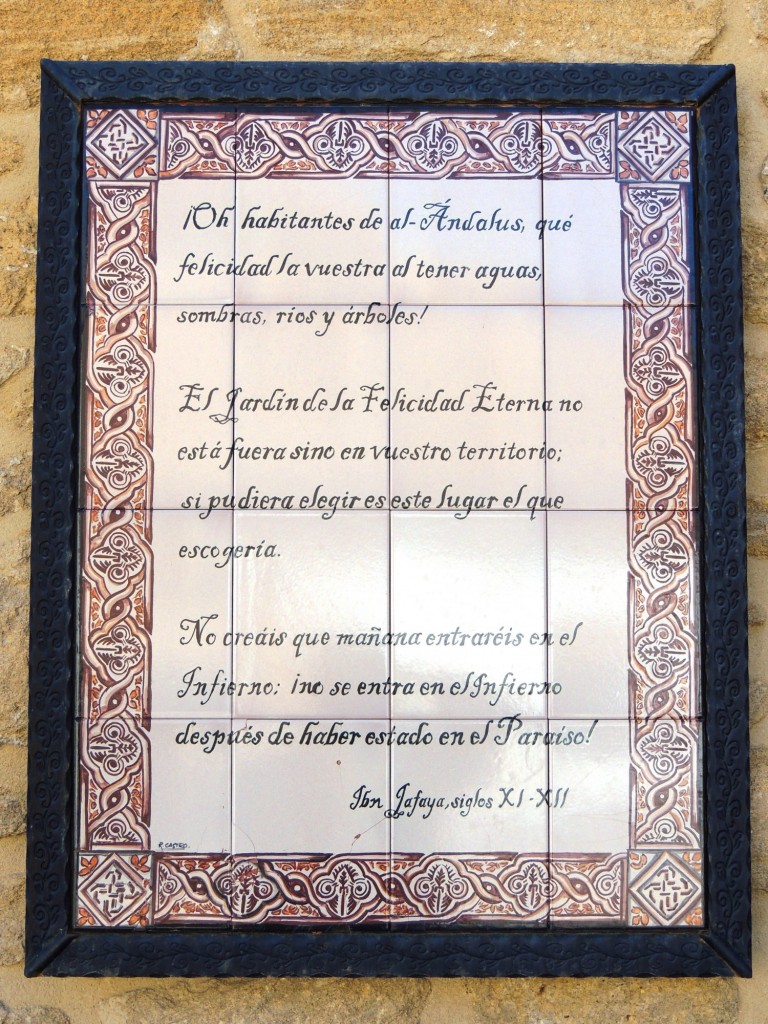 ¡Oh habitantes de al-Ándalus, qué
felicidad la vuestra al tener aguas,
sombras, ríos y árboles!
El Jardín de la Felicidad Eterna no
está fuera sino en vuestro territorio;
si pudiera elegir es este lugar el que
escogería.
No creáis que mañana entraréis en el
Infierno; ¡no se entra en el Infierno
después de haber estado en el Paraíso!
Ibn Jafaya, siglos XI-XII